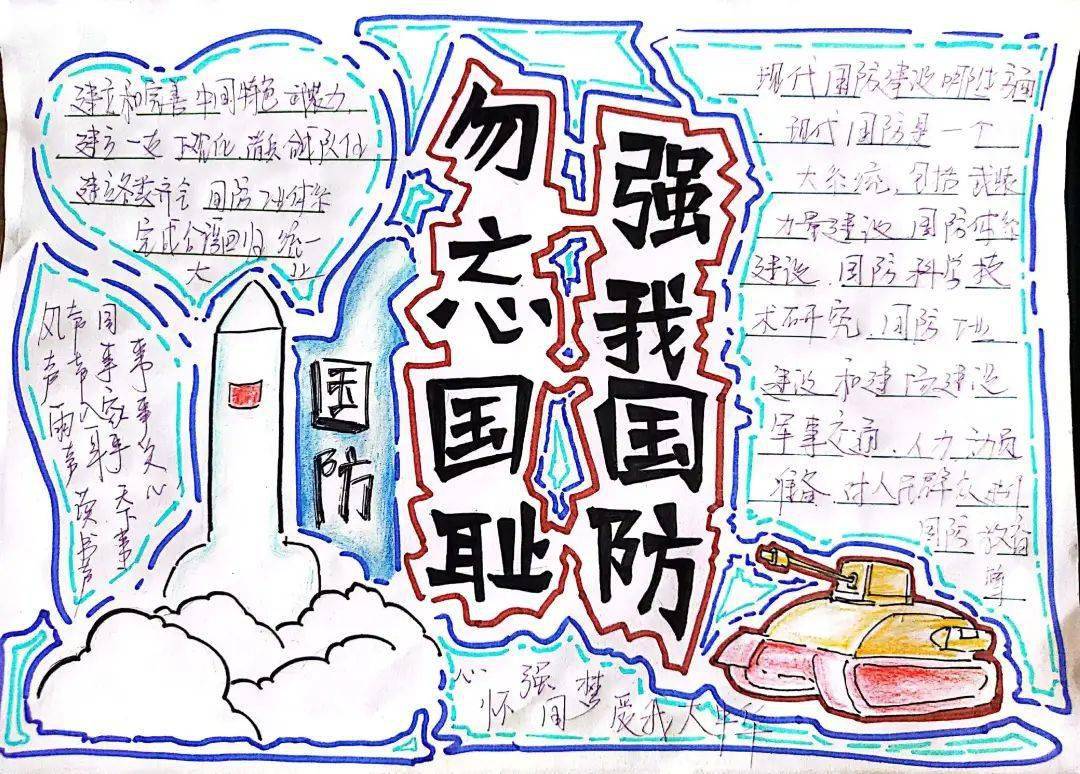 勿忘国耻
强我国防
建立和完善中国特色
建立
建立各委齐会 国防工业体系
完成 回归 统一
大业
国防
风声雨声读书声
声声入耳
国事家事天下事
事事关心
现代国防建设哪些方面
现代国防是一个
大系统，包括武装
力量建设 国防体系
建设、国防科学技
术研究、国防工业
建设和 建设
军事交通、人力动员
准备、对人民群众进行
国防教育
等
心怀强国梦 爱我大中华